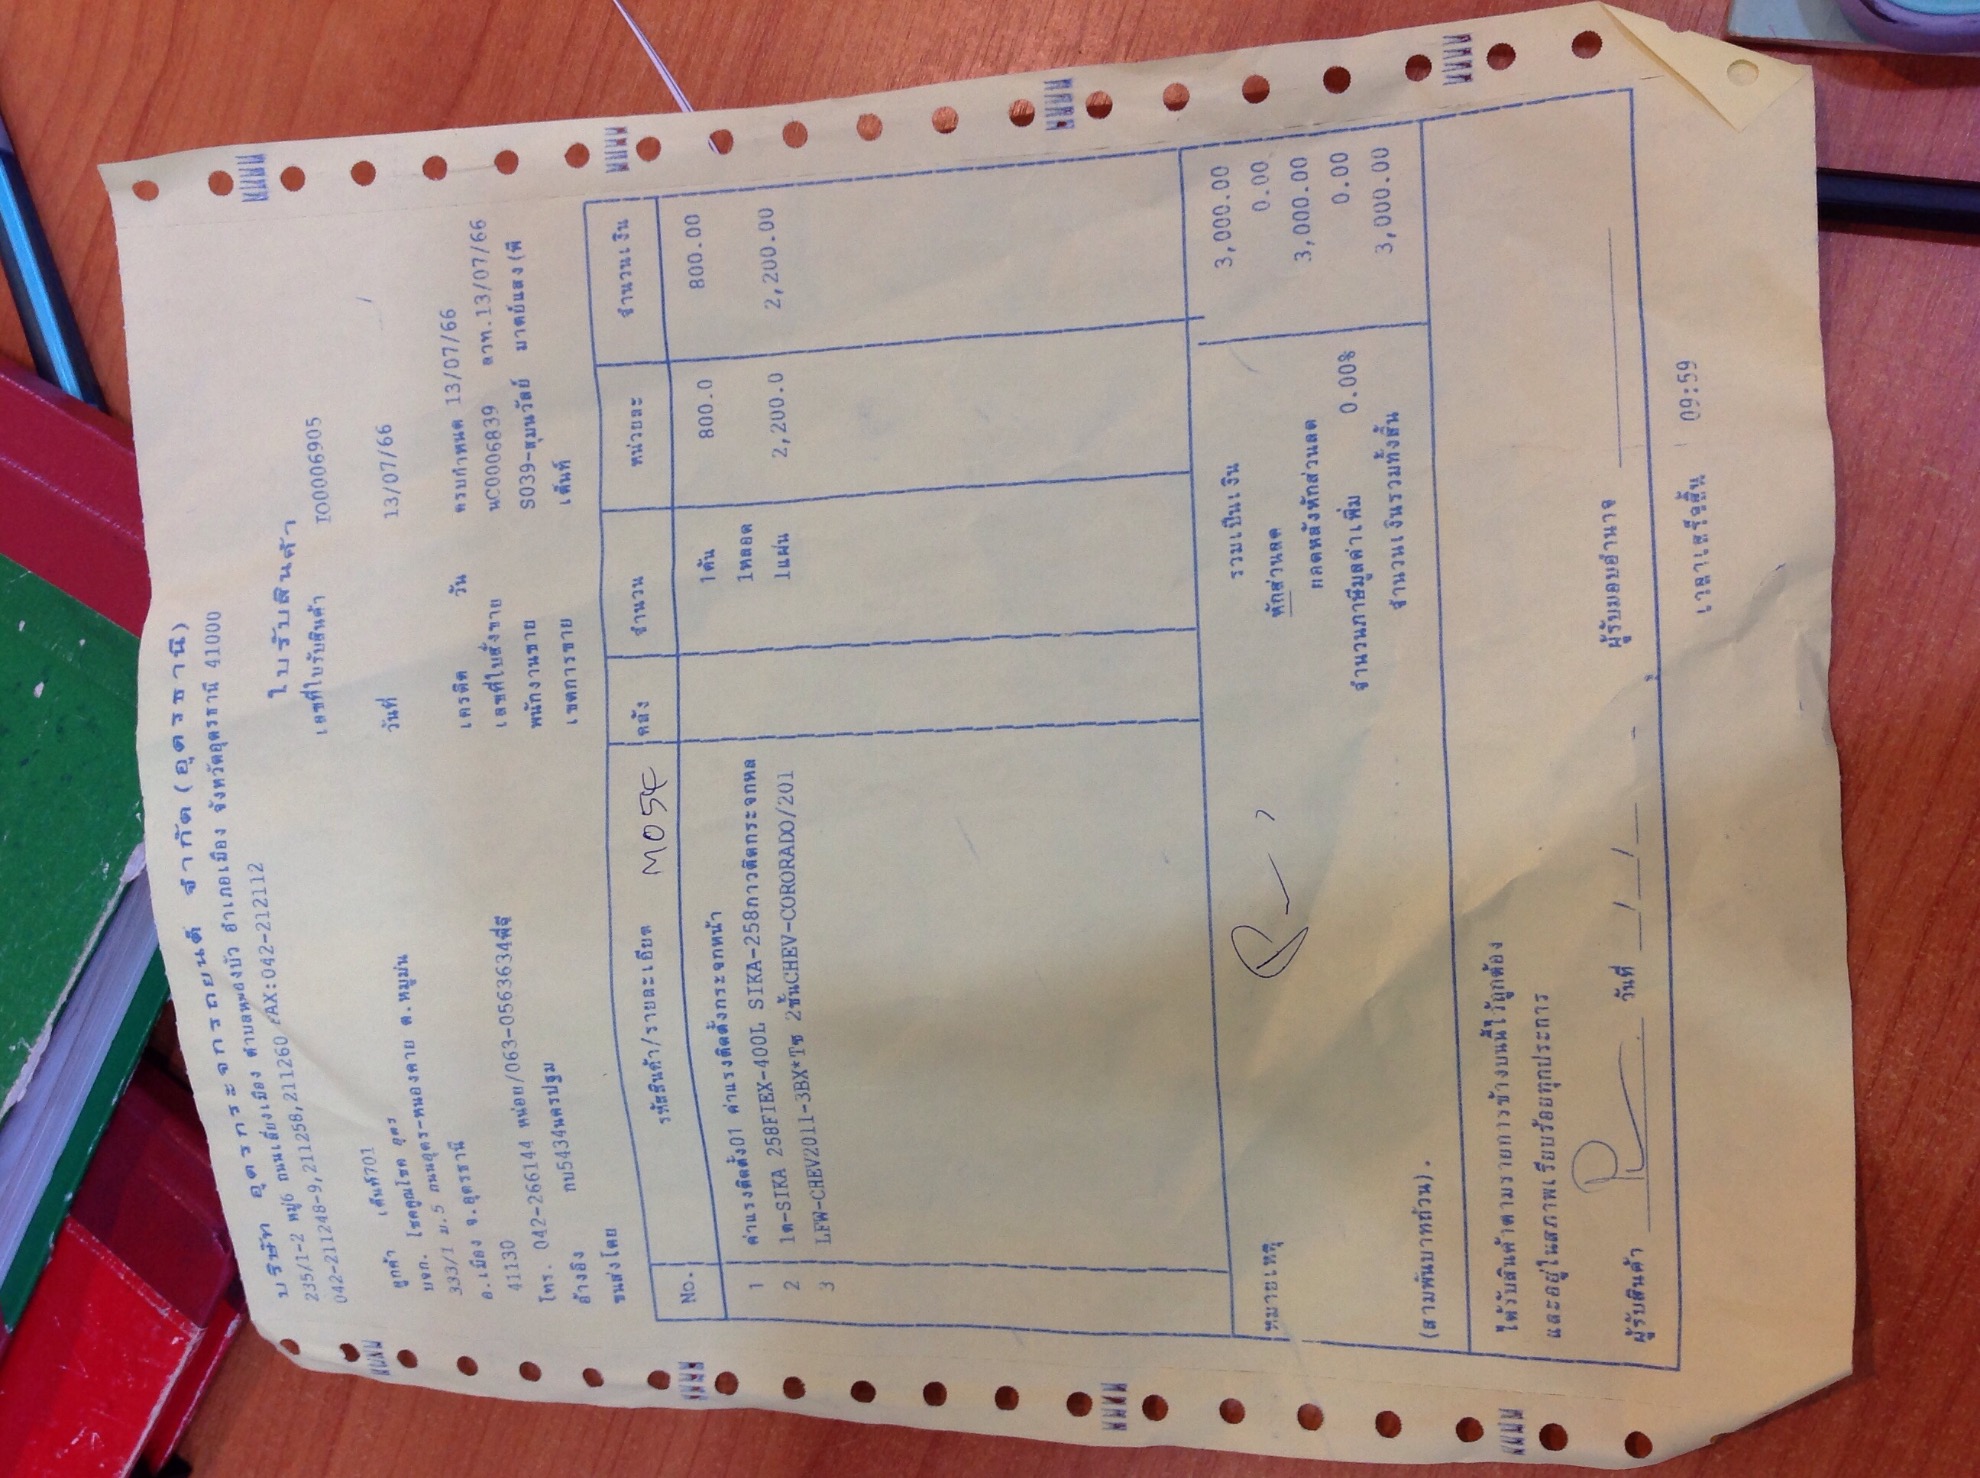 บริษัท อุดรกระจกรถยนต์ จำกัด(อุดรธานี)
235/1-2 หมู่6 ถนนเลี่ยงเมือง ตำบลหนองบัว อำเภอเมือง จังหวัดอุดรธานี 41000
042-211248-9,211258,211260 FAX:042-212112
ใบรับสินค้า
ลูกค้า เต็นท์701 เลขที่ใบรับสินค้า IO0006905
บจก. โชคคูณโชค อุดร
333/1 ม.5 ถนนอุดร-หนองคาย ต.หมูม่น วันที่ 13/07/66
อ.เมือง จ.อุดรธานี
41130 เครดิต วัน ครบกำหนด 13/07/66
โทร. 042-266144 หน่อย/063-0563634พี่ เลขที่ใบสั่งขาย นC0006839 ลวท.13/07/66
อ้างอิง กบ5434นครปฐม พนักงานขาย S039-สุมนวัลย์ มาตย์แสง(พี
ขนส่งโดย เขตการขาย เต็นท์
No. รหัสสินค้า/รายละเอียด M054 คลัง จำนวน หน่วยละ จำนวนเงิน
1 ค่าแรงติดตั้ง01 ค่าแรงติดตั้งกระจกหน้า 1คัน 800.0 800.00
2 1ด-SIKA 258FIEX-400L SIKA-258กาวติดกระจกหล 1หลอด
3 LFW-CHEV2011-3BX*Tซ 2ชั้นCHEV-CORORADO/201 1แผ่น 2,200.0 2,200.00
หมายเหตุ รวมเป็นเงิน 3,000.00
หักส่วนลด 0.00
ยอดหลังหักส่วนลด 3,000.00
จำนวนภาษีมูลค่าเพิ่ม 0.00% 0.00
(สามพันบาทถ้วน). จำนวนเงินรวมทั้งสิ้น 3,000.00
ได้รับสินค้าตามรายการข้างบนนี้ไว้ถูกต้อง
และอยู่ในสภาพเรียบร้อยทุกประการ
ผู้รับสินค้า วันที่ / / ผู้รับมอบอำนาจ
เวลาเสร็จสิ้น 09:59